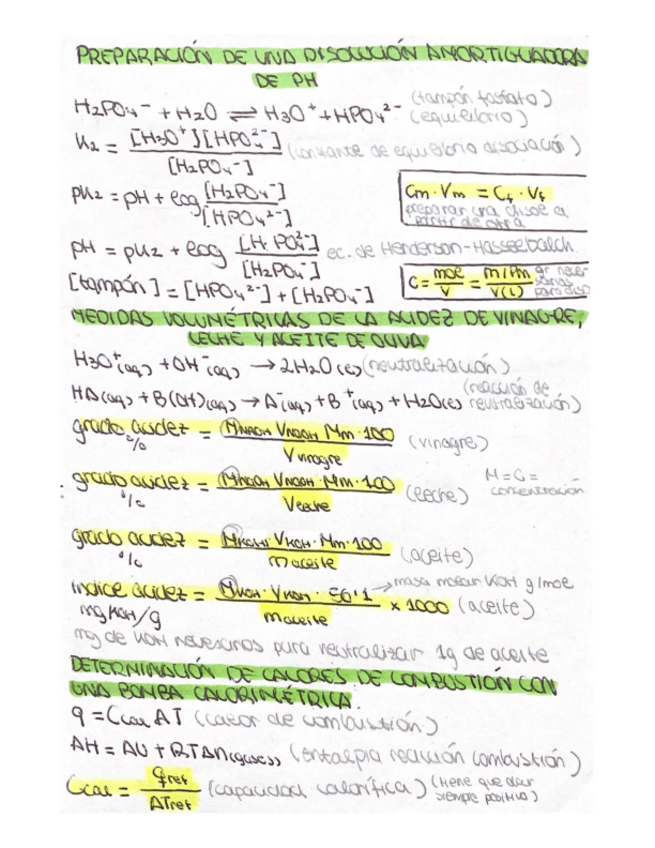 PREPARACIÓN DE UNA DISOLUCIÓN AMORTIGUADORA
DE PH
H₂PO₄⁻ + H₂O ⇌ H₃O⁺ + HPO₄²⁻ (tampón fosfato)
(equilibrio)
K₂ = [H₃O⁺][HPO₄²⁻] / [H₂PO₄⁻] (constante de equilibrio disociación)
pK₂ = pH + log [H₂PO₄⁻] / [HPO₄²⁻]
Cm · Vm = Cf · Vf
preparar una disol a
partir de otra
pH = pK₂ + log [HPO₄²⁻] / [H₂PO₄⁻] ec. de Henderson-Hasselbalch
[tampón] = [HPO₄²⁻] + [H₂PO₄⁻]
C = mol / V = m/Pm / V(L) gr nece-
sarios
para disol
MEDIDAS VOLUMÉTRICAS DE LA ACIDEZ DE VINAGRE,
LECHE Y ACEITE DE OLIVA
H₃O⁺(aq) + OH⁻(aq) → 2H₂O(l) (neutralización)
HA(aq) + B(OH)(aq) → A⁻(aq) + B⁺(aq) + H₂O(l) (reacción de
neutralización)
grado acidez = MNaOH VNaOH Mm · 100 / Vvinagre (vinagre)
%
grado acidez = MNaOH VNaOH · Mm · 100 / Vleche (leche)
%
M = C =
concentración
grado acidez = MKOH · VKOH · Mm · 100 / maceite (aceite)
%
índice acidez = MKOH · VKOH · 56'1 / maceite x 1000 (aceite)
→ masa molar KOH g/mol
mg KOH/g
mg de KOH necesarios para neutralizar 1g de aceite
DETERMINACIÓN DE CALORES DE COMBUSTIÓN CON
UNA BOMBA CALORIMÉTRICA.
q = Ccal ΔT (calor de combustión)
ΔH = ΔU + RTΔn(gases) (entalpia reacción combustión)
Ccal = qref / ΔTref (capacidad calorífica) (tiene que dar
siempre positivo)